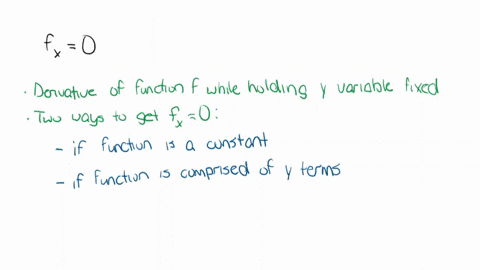 fₓ = 0
· Derivative of function f while holding y variable fixed
· Two ways to get fₓ = 0:
- if function is a constant
- if function is comprised of y terms